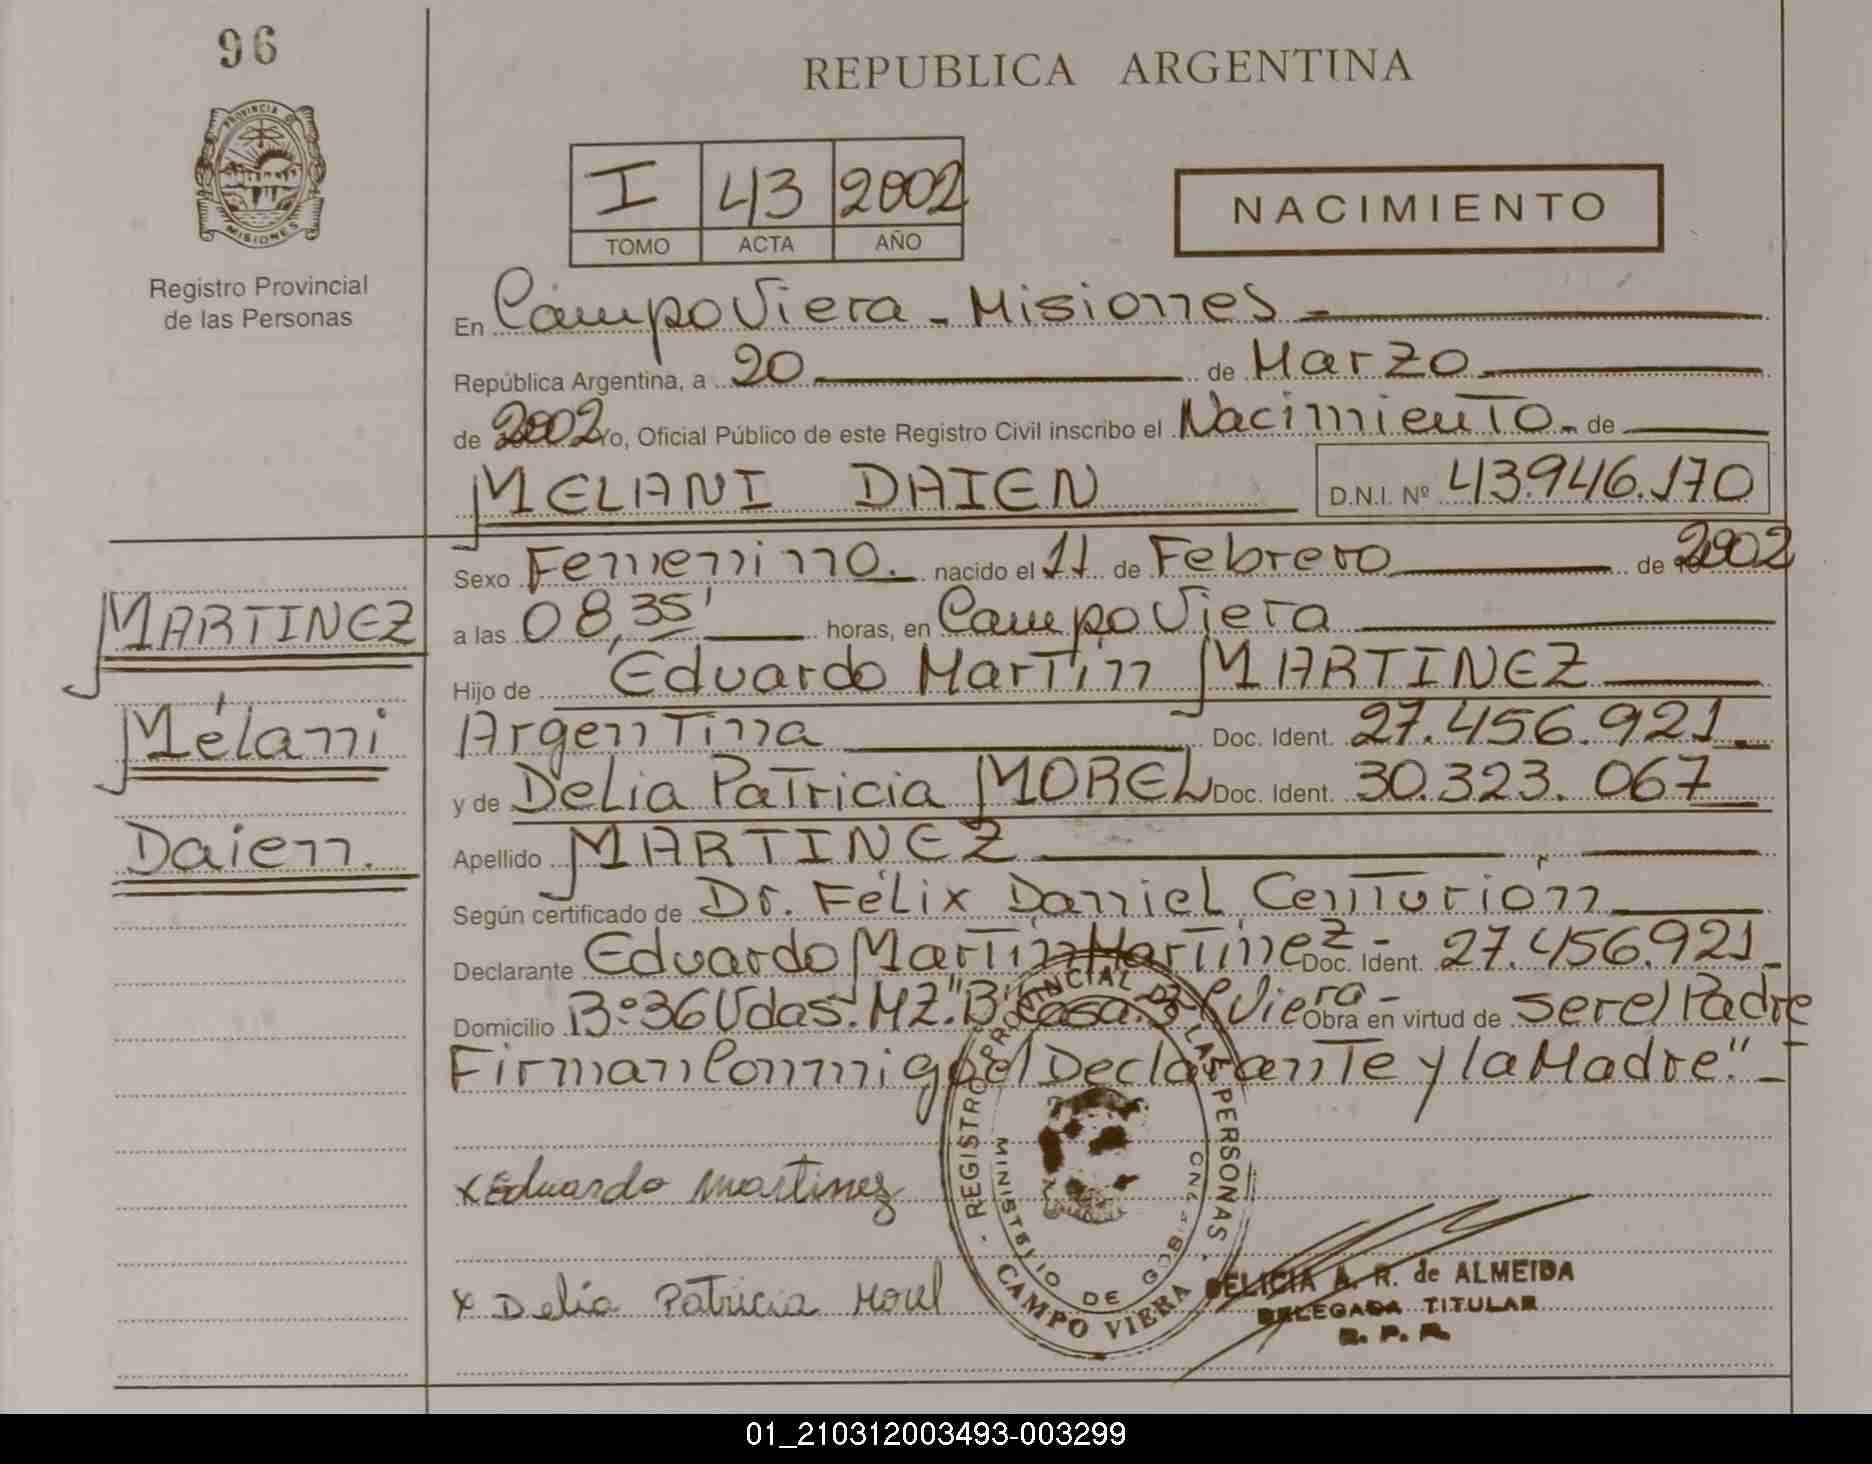 96
REPUBLICA ARGENTINA
PROVINCIA DE
MISIONES
Registro Provincial
de las Personas
I 43 2002
TOMO ACTA AÑO
NACIMIENTO
En Campo Viera - Misiones -
República Argentina, a 20 de Marzo
de 2002 Yo, Oficial Público de este Registro Civil inscribo el Nacimiento - de
MELANI DAIEN D.N.I. Nº 43.946.170
Sexo Femenino. nacido el 11 de Febrero de 2002
MARTINEZ
a las 08,35' horas, en Campo Viera
Hijo de Eduardo Martín MARTINEZ
Mélani
Argentina Doc. Ident. 27.456.921 -
y de Delia Patricia MOREL Doc. Ident. 30.323.067
Daien.
Apellido MARTINEZ
Según certificado de Dr. Félix Daniel Centurión
Declarante Eduardo Martín Martínez - Doc. Ident. 27.456.921 -
Domicilio Bº 36 Vdas. MZ. "B" Casa. 3 - C Viera - Obra en virtud de ser el Padre -
Firman Conmigo el Declarante y la Madre." -
x Eduardo Martinez
x Delia Patricia Morel
REGISTRO PROVINCIAL DE LAS PERSONAS
MINISTERIO DE
CAMPO VIERA
DELICIA A. R. de ALMEIDA
DELEGADA TITULAR
R. P. P.
01_210312003493-003299